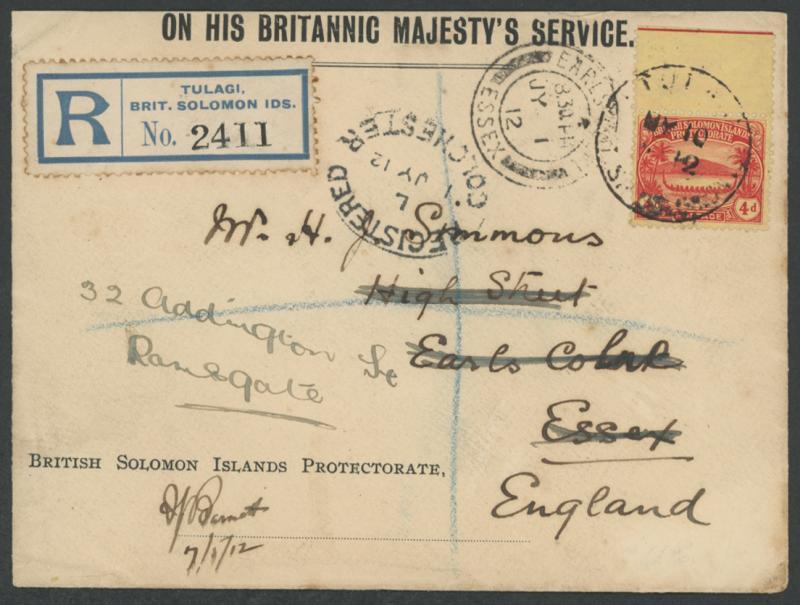 ON HIS BRITANNIC MAJESTY'S SERVICE.
R
TULAGI,
BRIT. SOLOMON IDS.
No. 2411
REGISTERED
COLCHESTER
JY 12
EARLS
ESSEX
8.30 PM
JY 1
12
TUL
12
BRITISH SOLOMON ISLANDS
PROTECTORATE
4d
Mr. H. J. Simmons
High Street
Earls Colne
Essex
England
32 Addington St
Ramsgate
BRITISH SOLOMON ISLANDS PROTECTORATE,
Barnett
7/5/12